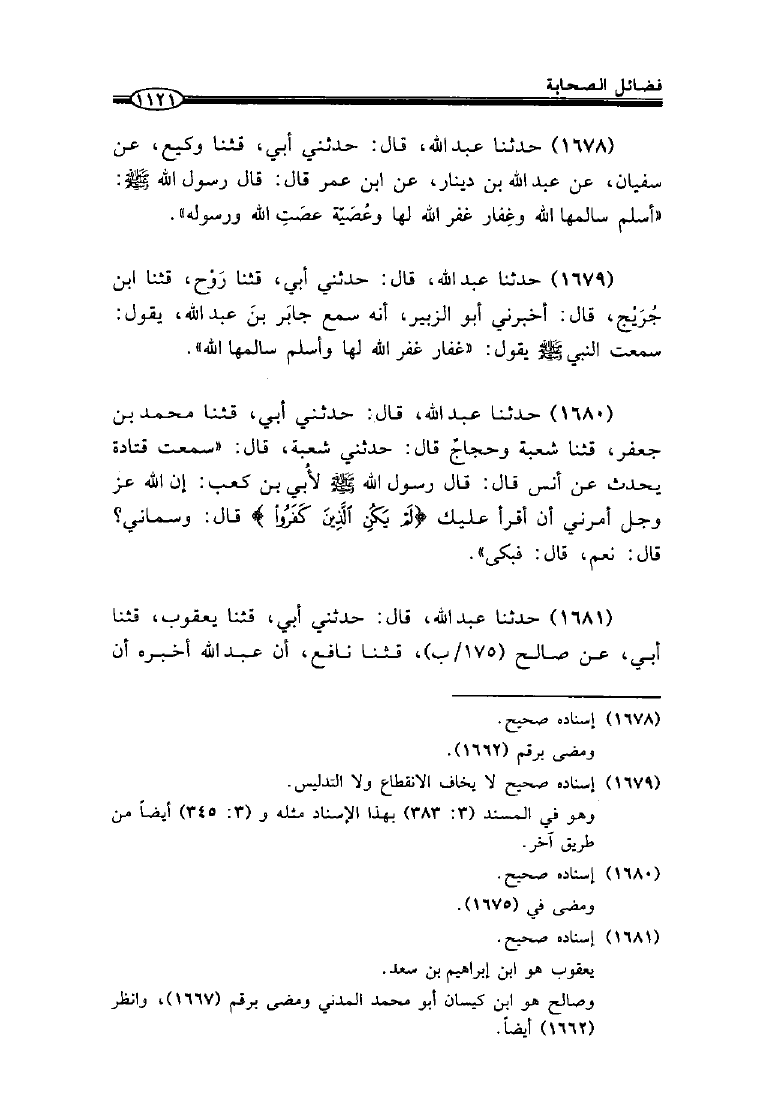 فضائل الصحابة
١١٢١
(١٦٧٨) حدثنا عبد الله، قال: حدثني أبي، قثنا وكيع، عن
سفيان، عن عبد الله بن دينار، عن ابن عمر قال: قال رسول الله ﷺ:
«أسلم سالمها الله وغِفار غفر الله لها وعُصَيّة عصَتِ الله ورسوله».
(١٦٧٩) حدثنا عبد الله، قال: حدثني أبي، قثنا رَوْح، قثنا ابن
جُرَيْج، قال: أخبرني أبو الزبير، أنه سمع جابَر بنَ عبد الله، يقول:
سمعت النبي ﷺ يقول: «غفار غفر الله لها وأسلم سالمها الله».
(١٦٨٠) حدثنا عبد الله، قال: حدثني أبي، قثنا محمد بن
جعفر، قثنا شعبة وحجاجٌ قال: حدثني شعبة، قال: «سمعت قتادة
يحدث عن أنس قال: قال رسول الله ﷺ لأُبي بن كعب: إن الله عز
وجل أمرني أن أقرأ عليك ﴿لَمْ يَكُنِ ٱلَّذِينَ كَفَرُوا۟﴾ قال: وسماني؟
قال: نعم، قال: فبكى».
(١٦٨١) حدثنا عبد الله، قال: حدثني أبي، قثنا يعقوب، قثنا
أبي، عن صالح (١٧٥/ب)، قثنا نافع، أن عبد الله أخبره أن
(١٦٧٨) إسناده صحيح.
ومضى برقم (١٦٦٢).
(١٦٧٩) إسناده صحيح لا يخاف الانقطاع ولا التدليس.
وهو في المسند (٣: ٣٨٣) بهذا الإسناد مثله و (٣: ٣٤٥) أيضاً من
طريق آخر.
(١٦٨٠) إسناده صحيح.
ومضى في (١٦٧٥).
(١٦٨١) إسناده صحيح.
يعقوب هو ابن إبراهيم بن سعد.
وصالح هو ابن كيسان أبو محمد المدني ومضى برقم (١٦٦٧)، وانظر
(١٦٦٢) أيضاً.